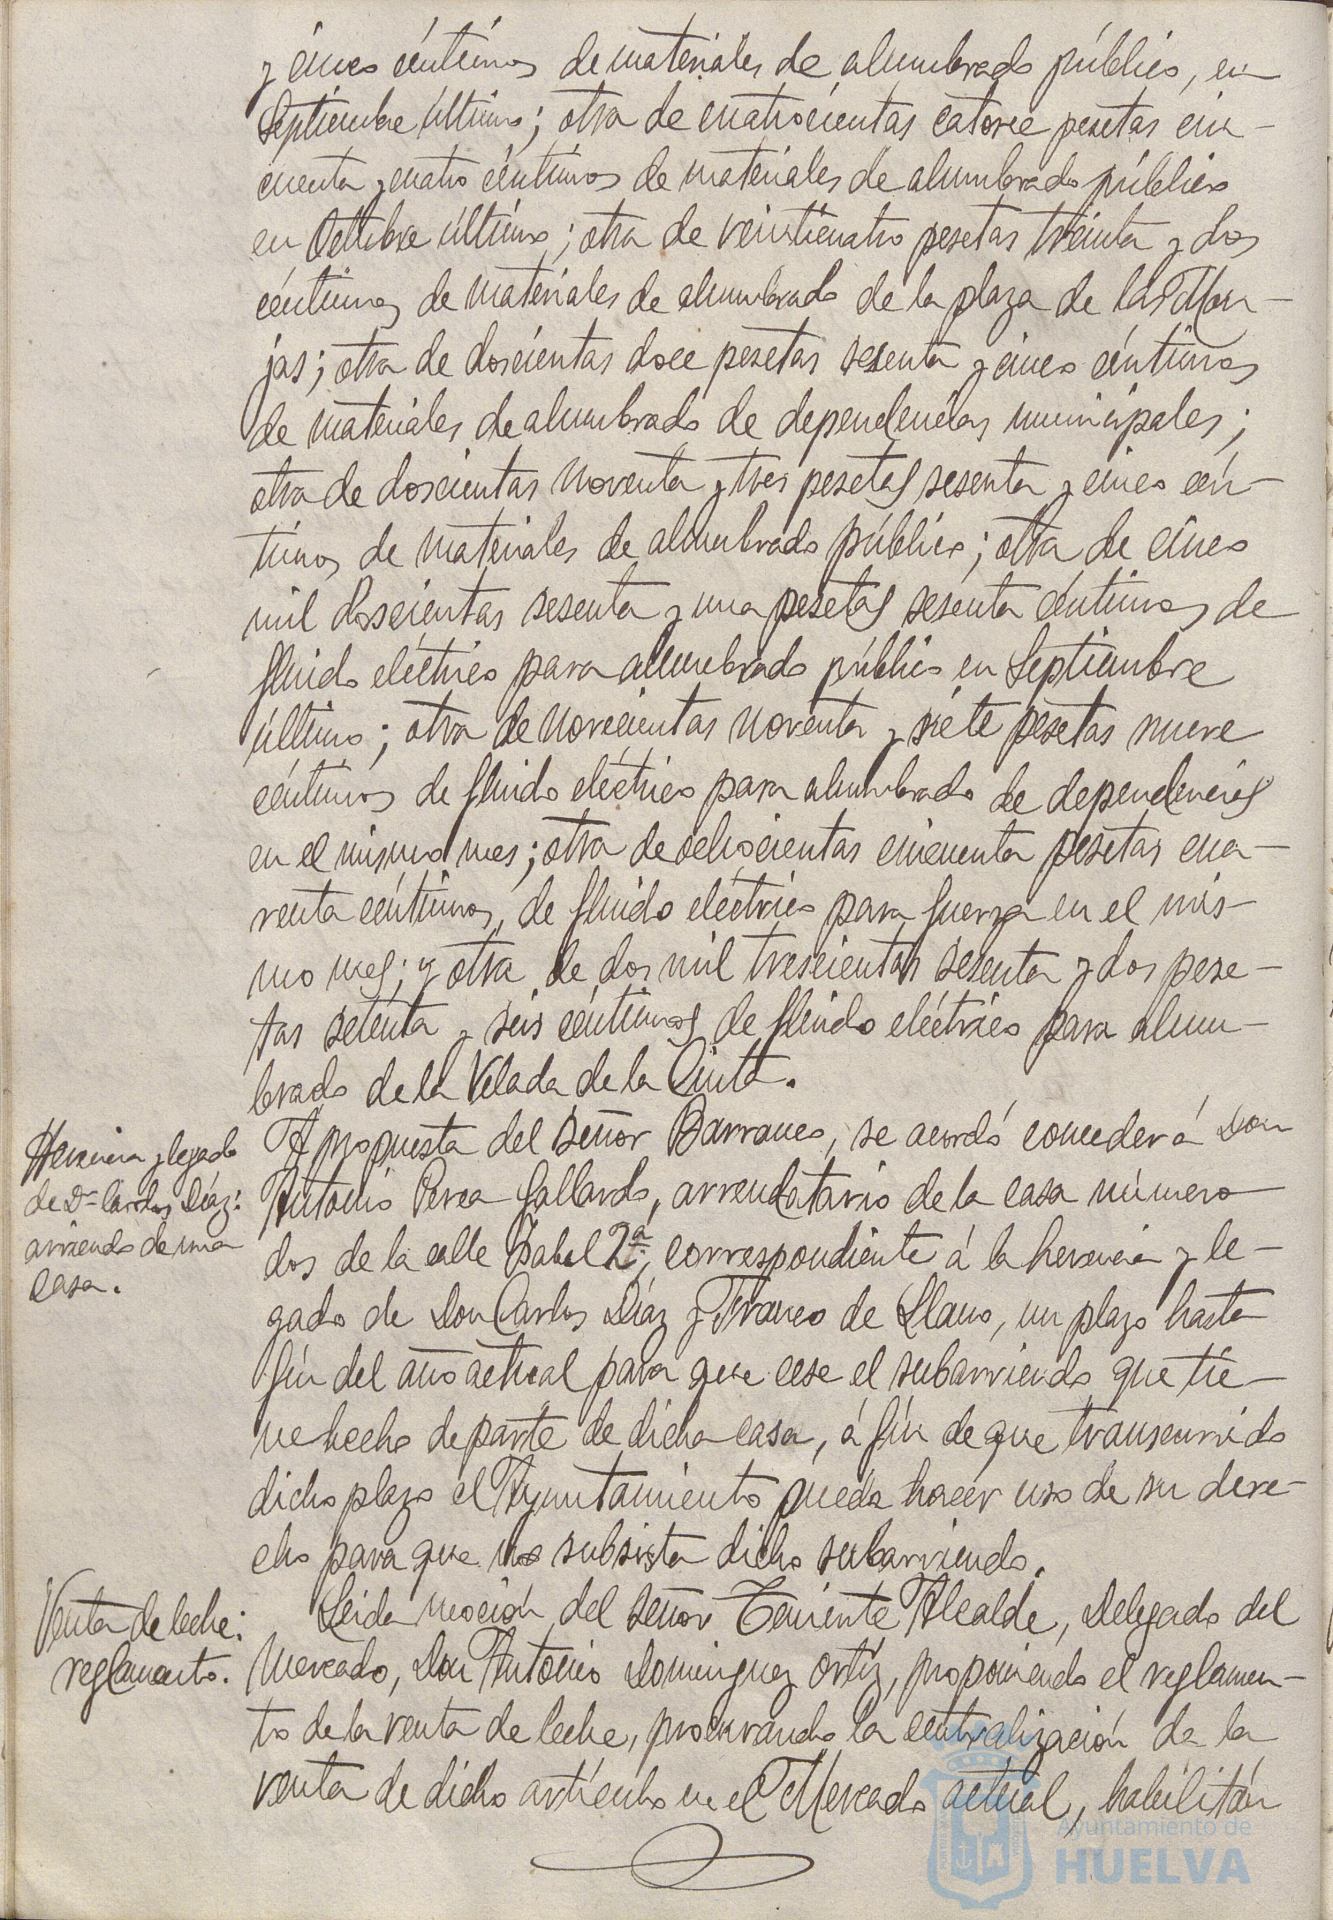 y cinco céntimos de materiales de alumbrado público, en
Septiembre último; otra de cuatrocientas catorce pesetas cin-
cuenta y cuatro céntimos de materiales de alumbrado público
en Octubre último; otra de veinticuatro pesetas treinta y dos
céntimos de materiales de alumbrado de la plaza de las Mon-
jas; otra de doscientas doce pesetas sesenta y cinco céntimos
de materiales de alumbrado de dependencias municipales;
otra de doscientas noventa y tres pesetas sesenta y cinco cén-
timos de materiales de alumbrado público; otra de cinco
mil doscientas sesenta y una pesetas sesenta céntimos de
fluido eléctrico para alumbrado público en Septiembre
último; otra de novecientas noventa y siete pesetas nueve
céntimos de fluido eléctrico para alumbrado de dependencias
en el mismo mes; otra de ochocientas cincuenta pesetas cua-
renta céntimos, de fluido eléctrico para fuerza en el mis-
mo mes; y otra de dos mil trescientas sesenta y dos pese-
tas setenta y seis céntimos de fluido eléctrico para alum-
brado de la Velada de la Cinta.
Herencia y legado
de Dn Carlos Díaz:
arriendo de una
casa.
A propuesta del señor Barranco, se acordó conceder á Don
Antonio Perea Gallardo, arrendatario de la casa número
dos de la calle Isabel 2ª, correspondiente á la herencia y le-
gado de Don Carlos Díaz y Franco de Llano, un plazo hasta
fin del año actual para que cese el subarriendo que tie-
ne hecho de parte de dicha casa, á fin de que transcurrido
dicho plazo el Ayuntamiento pueda hacer uso de su dere-
cho para que no subsista dicho subarriendo.
Venta de leche:
reglamento.
Leida moción del señor Teniente Alcalde, Delegado del
Mercado, Don Antonio Dominguez Ortíz, proponiendo el reglamen-
to de la venta de leche, procurando la centralización de la
venta de dicho artículo en el Mercado actual, habilitán
Ayuntamiento de
HUELVA